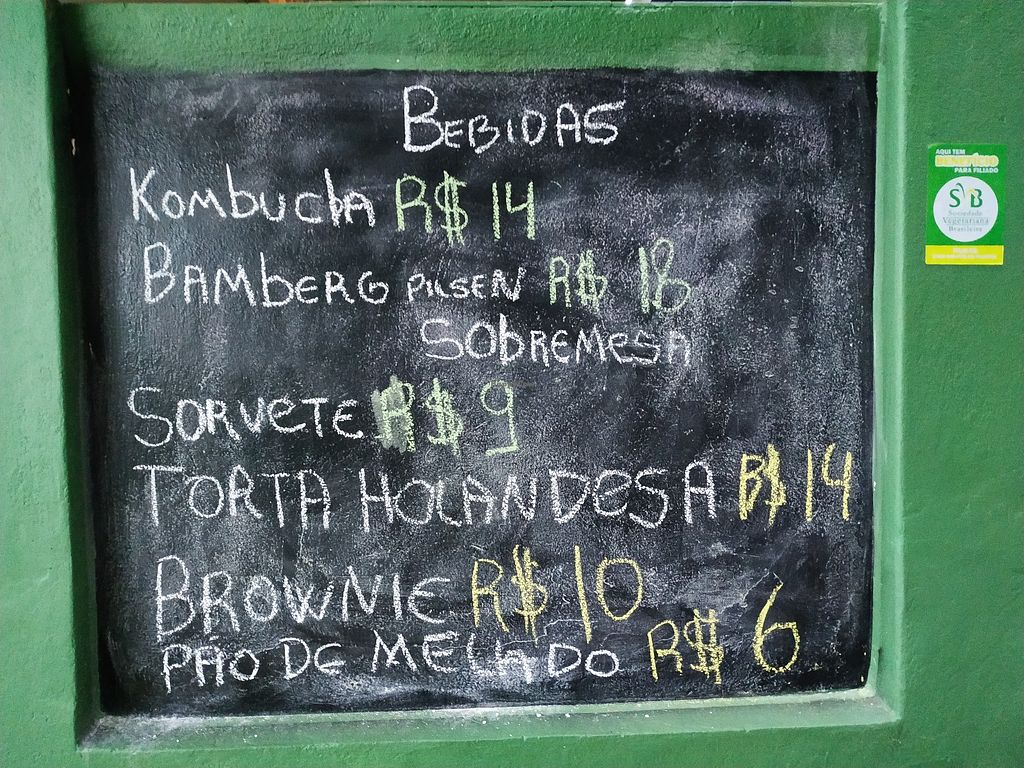 BEBIDAS
KOMBUCHA R$ 14
BAMBERG PILSEN R$ 18
SOBREMESA
SORVETE R$ 9
TORTA HOLANDESA R$ 14
BROWNIE R$ 10
PÃO DE MELADO R$ 6
AQUI TEM
BENEFÍCIO
PARA FILIADO
SVB
Sociedade
Vegetariana
Brasileira